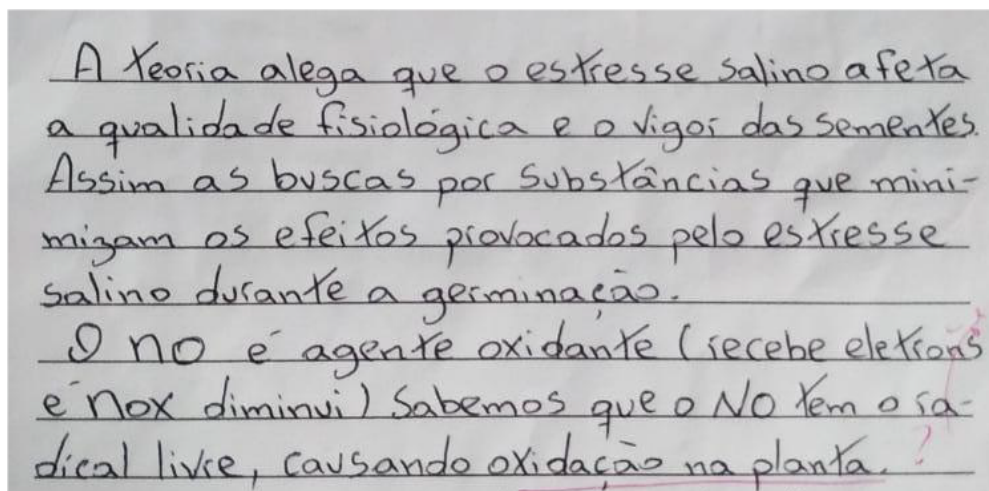 A teoria alega que o estresse salino afeta
a qualidade fisiológica e o vigor das sementes.
Assim as buscas por substâncias que mini-
mizam os efeitos provocados pelo estresse
salino durante a germinação.
O no é agente oxidante (recebe eletrons
e nox diminui) Sabemos que o NO tem o ra-
dical livre, causando oxidação na planta. ?